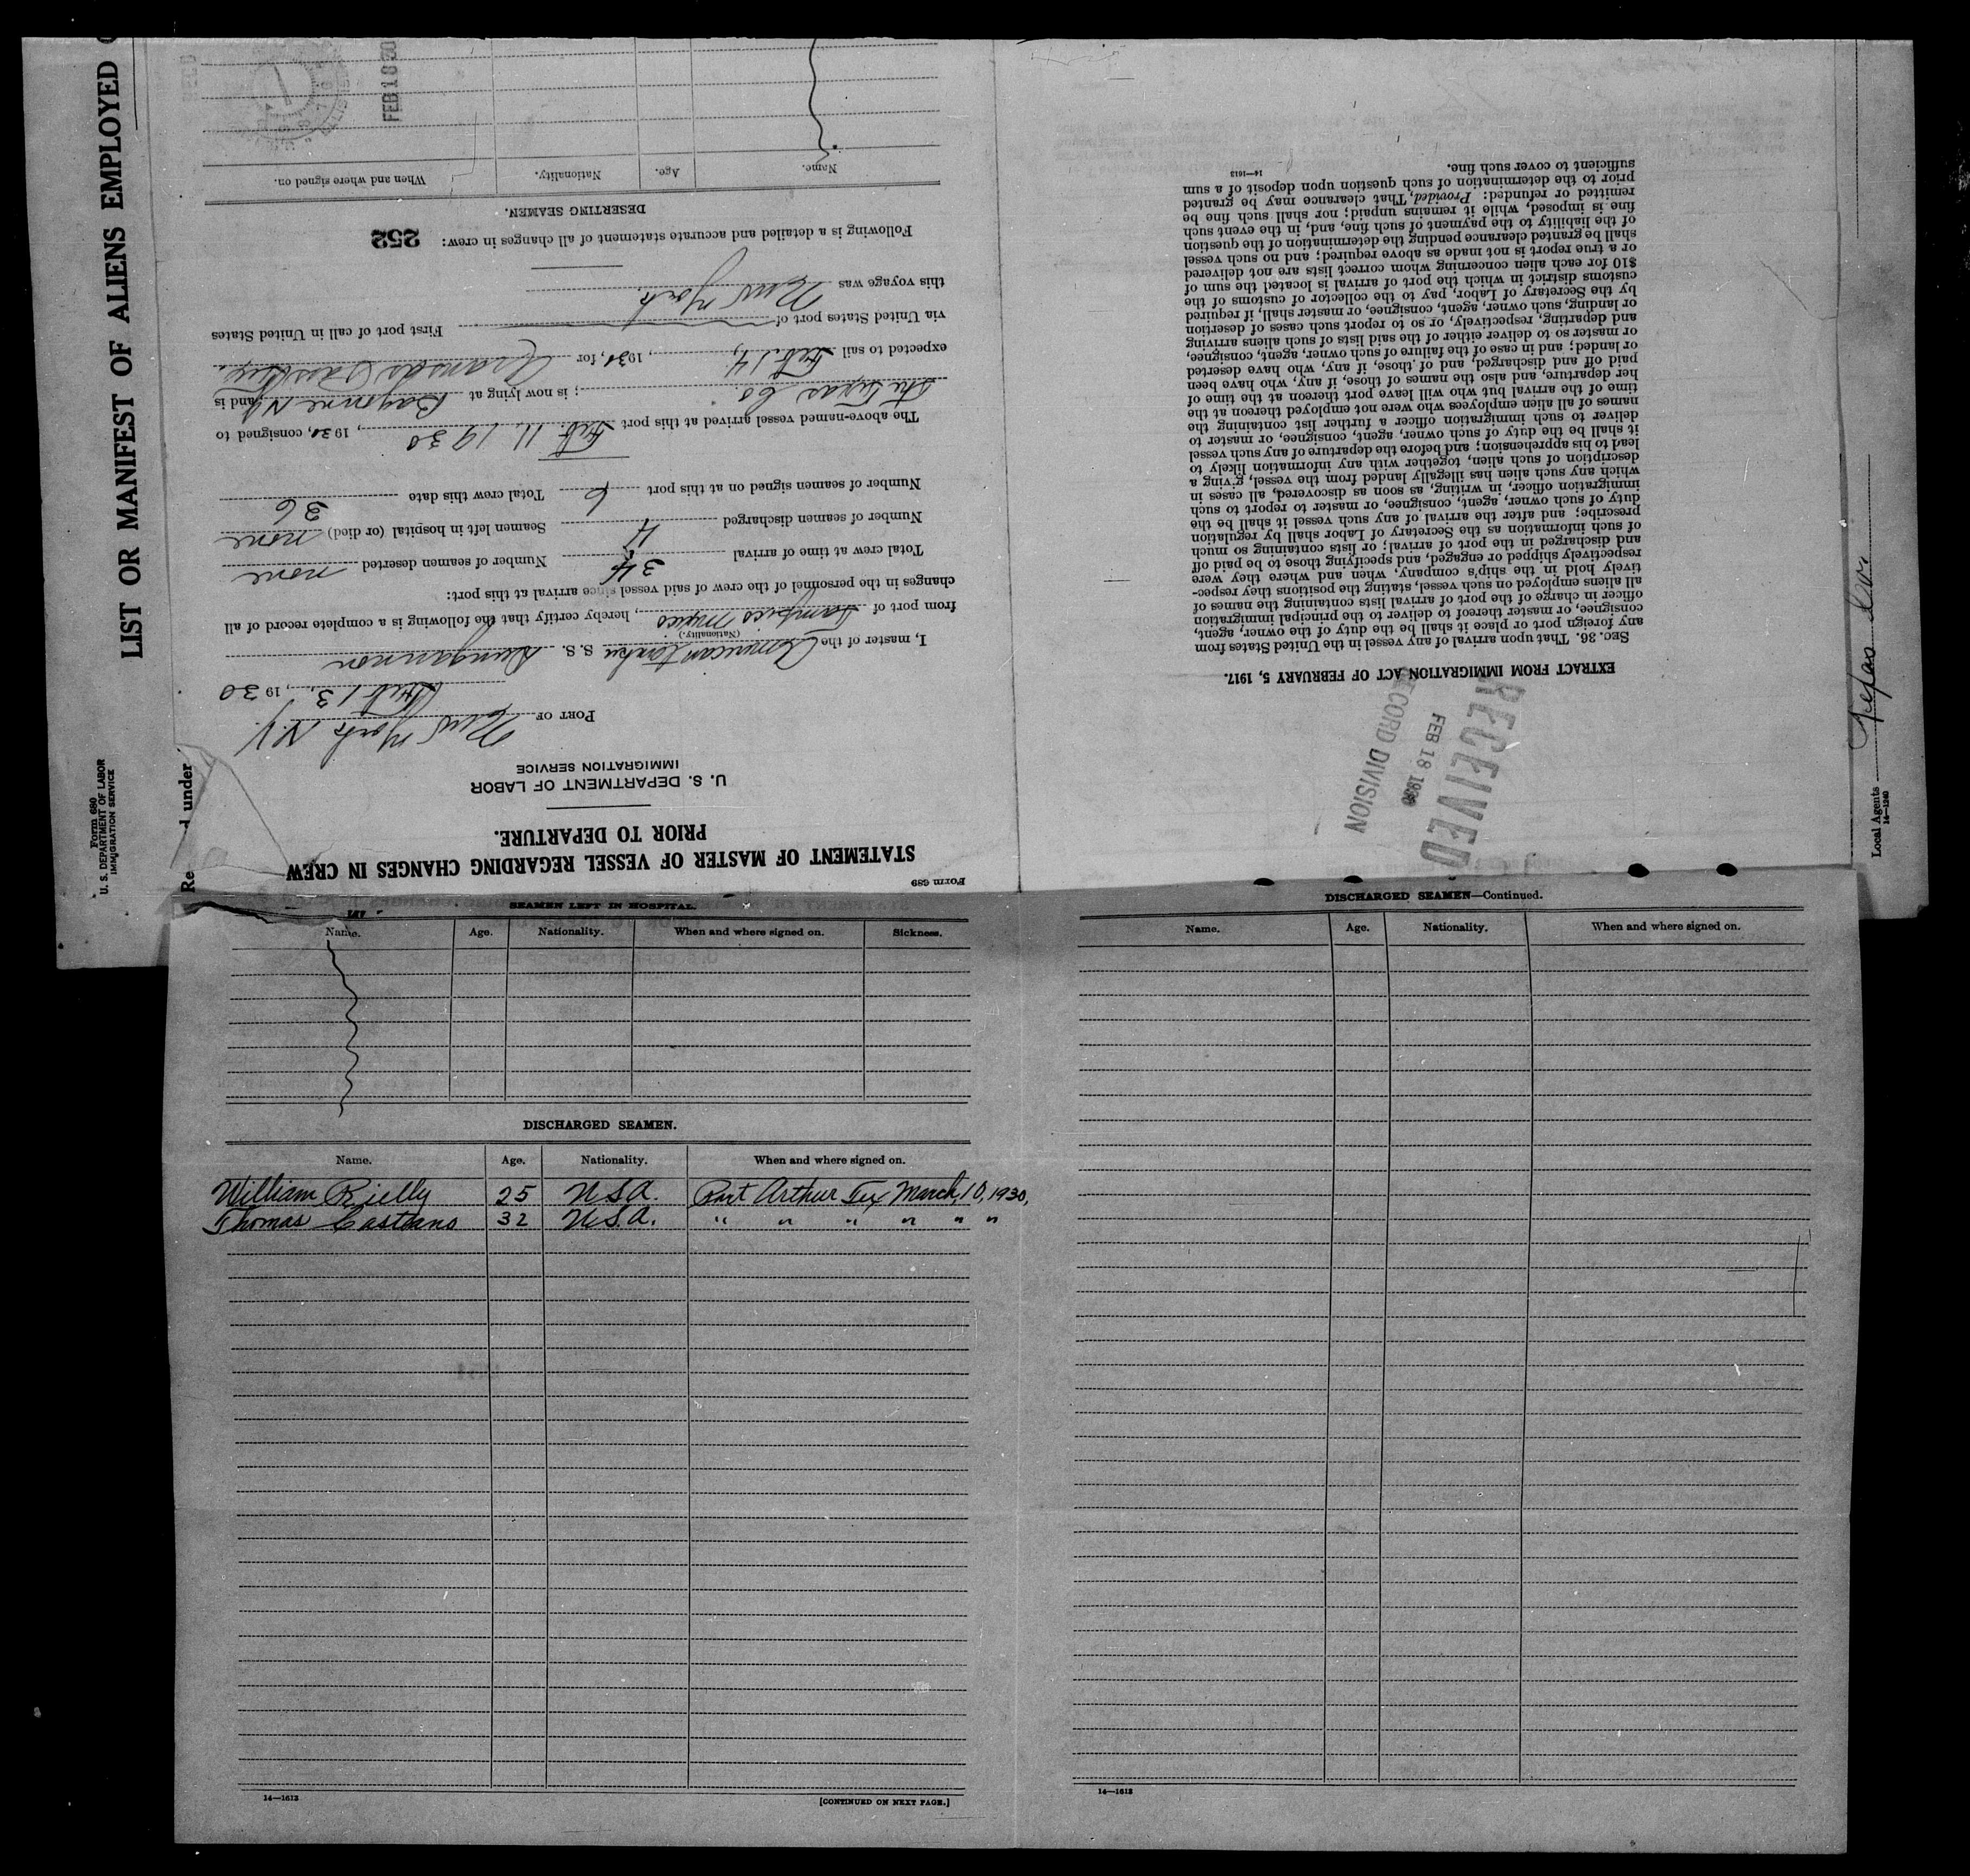 Form 680
U. S. DEPARTMENT OF LABOR
IMMIGRATION SERVICE
LIST OR MANIFEST OF ALIENS EMPLOYED
Form 689
STATEMENT OF MASTER OF VESSEL REGARDING CHANGES IN CREW
PRIOR TO DEPARTURE.
U. S. DEPARTMENT OF LABOR
IMMIGRATION SERVICE
PORT OF New York N.Y.
Feb 13, 1930
I, master of the American tanker S. S. Dungannon
(Nationality.)
from port of Tampico Mexico, hereby certify that the following is a complete record of all
changes in the personnel of the crew of said vessel since arrival at this port:
Total crew at time of arrival 34 Number of seamen deserted none
Number of seamen discharged 4 Seamen left in hospital (or died) none
Number of seamen signed on at this port 6 Total crew this date 36
The above-named vessel arrived at this port Feb. 11. 1930, 1930, consigned to
The Texas Co. ; is now lying at Bayonne NJ and is
expected to sail Feb. 14, 1930, for Aransas Pass Tex.
via United States port of First port of call in United States
this voyage was New York.
Following is a detailed and accurate statement of all changes in crew: 252
DESERTING SEAMEN.
Name. Age. Nationality. When and where signed on.
FEB 18 30
EXTRACT FROM IMMIGRATION ACT OF FEBRUARY 5, 1917.
SEC. 36. That upon arrival of any vessel in the United States from
any foreign port or place it shall be the duty of the owner, agent,
consignee, or master thereof to deliver to the principal immigration
officer in charge of the port of arrival lists containing the names of
all aliens employed on such vessel, stating the positions they respec-
tively hold in the ship's company, when and where they were
respectively shipped or engaged, and specifying those to be paid off
and discharged in the port of arrival; or lists containing so much
of such information as the Secretary of Labor shall by regulation
prescribe; and after the arrival of any such vessel it shall be the
duty of such owner, agent, consignee, or master to report to such
immigration officer, in writing, as soon as discovered, all cases in
which any such alien has illegally landed from the vessel, giving a
description of such alien, together with any information likely to
lead to his apprehension; and before the departure of any such vessel
it shall be the duty of such owner, agent, consignee, or master to
deliver to such immigration officer a further list containing the
names of all alien employees who were not employed thereon at the
time of the arrival but who will leave port thereon at the time of
her departure, and also the names of those, if any, who have been
paid off and discharged, and of those, if any, who have deserted
or landed; and in case of the failure of such owner, agent, consignee,
or master so to deliver either of the said lists of such aliens arriving
and departing, respectively, or so to report such cases of desertion
or landing, such owner, agent, consignee, or master shall, if required
by the Secretary of Labor, pay to the collector of customs of the
customs district in which the port of arrival is located the sum of
$10 for each alien concerning whom correct lists are not delivered
or a true report is not made as above required; and no such vessel
shall be granted clearance pending the determination of the question
of the liability to the payment of such fine, and, in the event such
fine is imposed, while it remains unpaid; nor shall such fine be
remitted or refunded: Provided, That clearance may be granted
prior to the determination of such question upon deposit of a sum
sufficient to cover such fine.
14—1613
RECEIVED
FEB 18 1930
RECORD DIVISION
Local Agents
14—1240
SEAMEN LEFT IN HOSPITAL.
Name. Age. Nationality. When and where signed on. Sickness.
DISCHARGED SEAMEN.
Name. Age. Nationality. When and where signed on.
William Rielly 25 U.S.A. Port Arthur Tex March, 10, 1930,
Thomas Casteano 32 U.S.A. " " " " " "
14—1613
[CONTINUED ON NEXT PAGE.]
DISCHARGED SEAMEN—Continued.
Name. Age. Nationality. When and where signed on.
14—1613